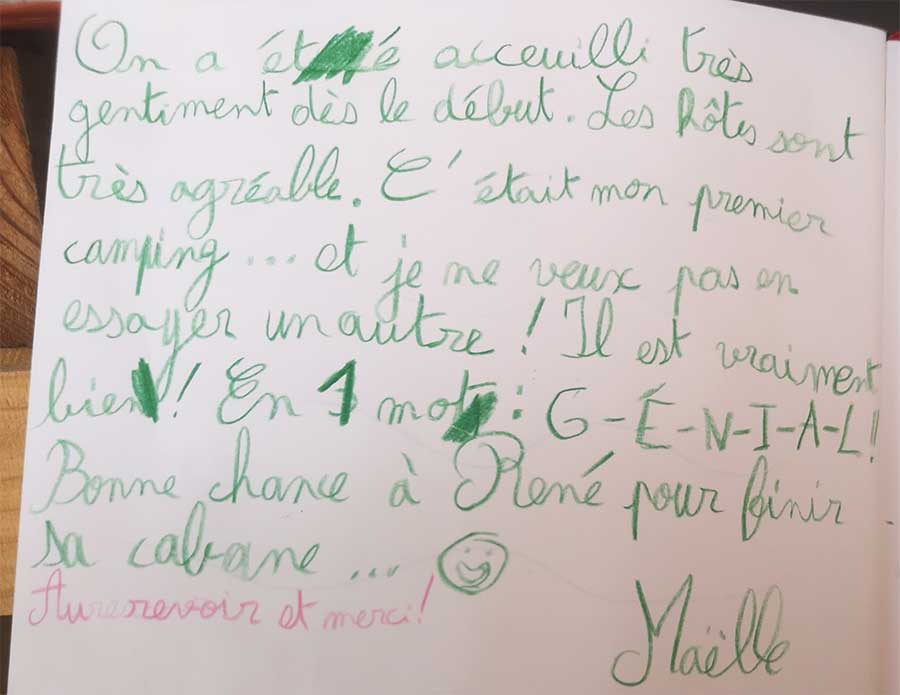 On a été acceuilli très
gentiment dès le début. Les hôtes sont
très agréable. C'était mon premier
camping ... et je ne veux pas en
essayer un autre ! Il est vraiment
bien ! En 1 mot : G-É-N-I-A-L!
Bonne chance à René pour finir
sa cabane ... ☺
Au revoir et merci!
Maëlle